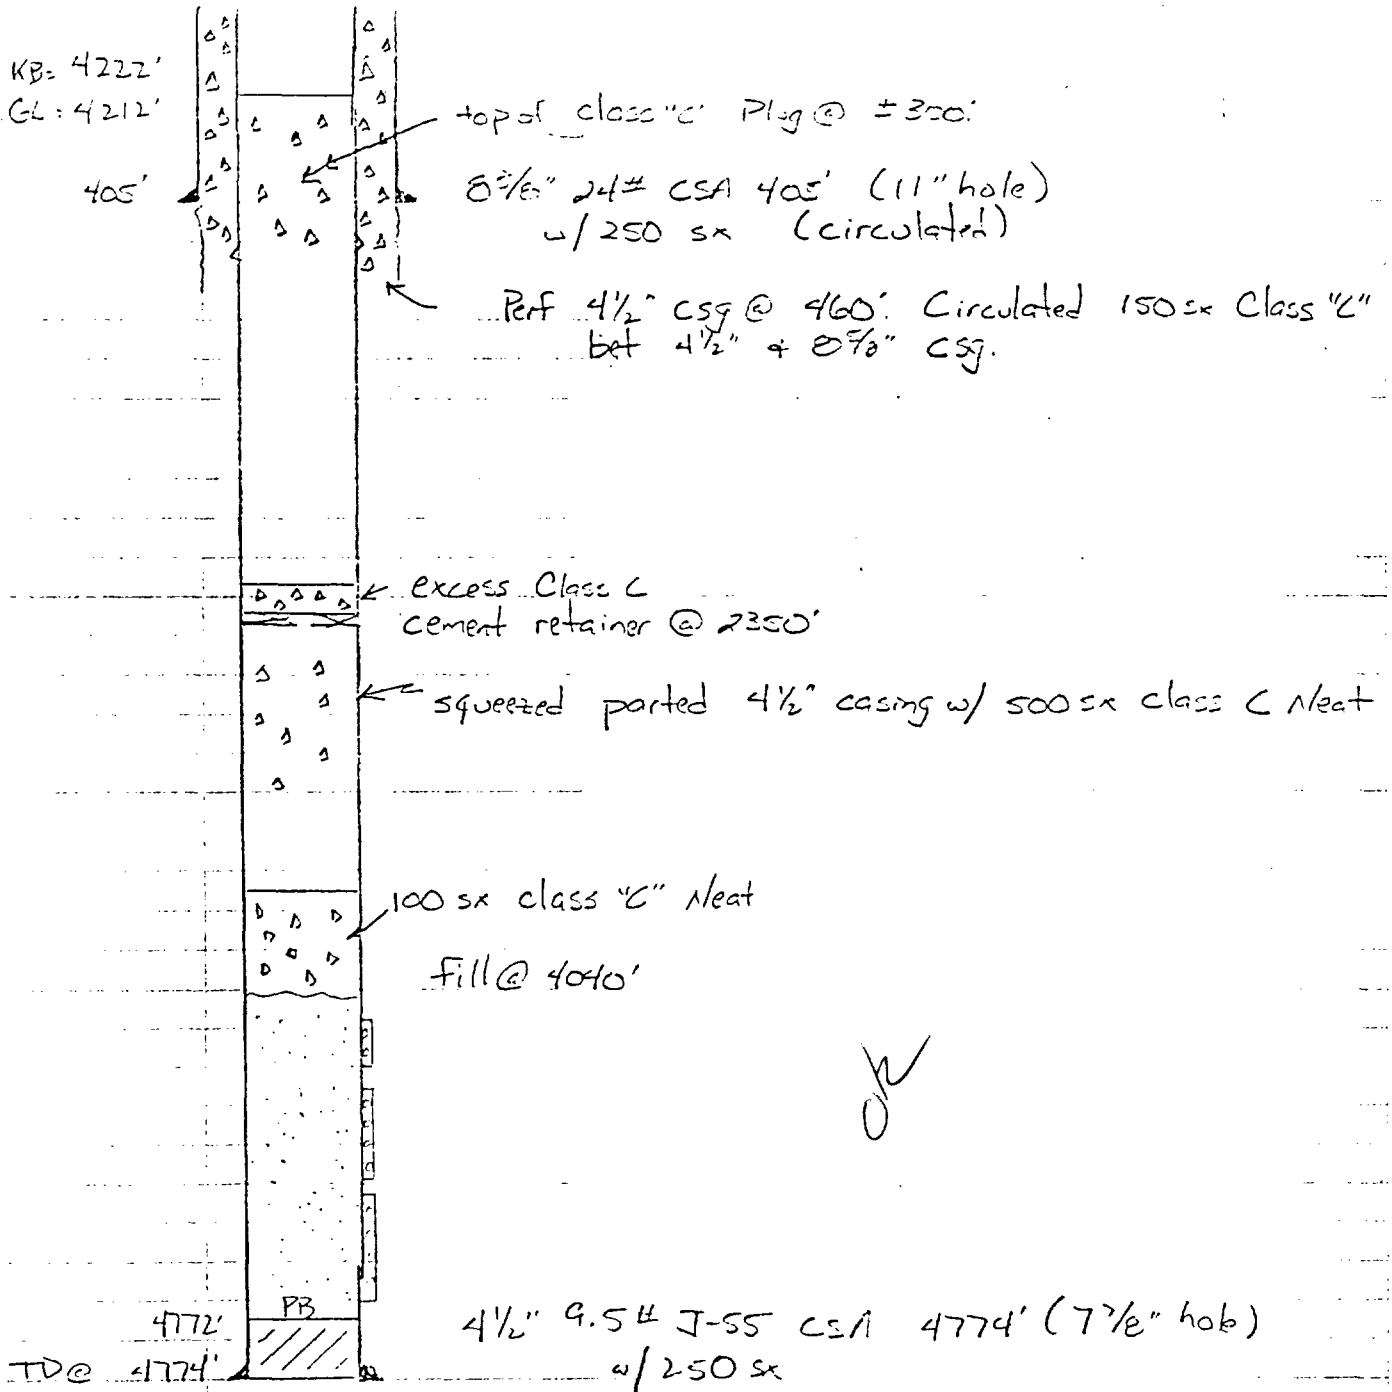 KB= 4222'
GL: 4212'
top of class "C" Plug @ ± 300'
405'
8 5/8" 24# CSA 405' (11" hole)
w/ 250 sx (circulated)
Perf 4½" csg @ 460'. Circulated 150 sx Class "C"
bet 4½" & 8 5/8" csg.
excess Class C
cement retainer @ 2350'
squeezed parted 4½" casing w/ 500 sx Class C Neat
100 sx class "C" Neat
fill @ 4040'
OK
PB
4772'
4½" 9.5# J-55 CSA 4774' (7 7/8" hole)
TD @ 4774'
w/ 250 sx